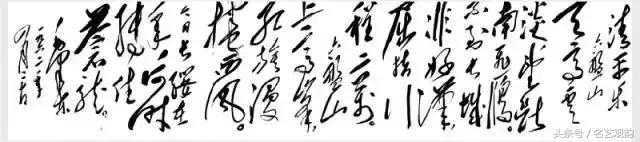 清平乐
六盘山
天高云
淡望断
南飞雁。
不到长城
非好汉
屈指行
程二万
六盘山
上高峰
红旗漫
捲西风。
今日长缨在
手何时
缚住
苍龙。
毛泽东
一九六一年
九月
头条号 / 名艺观韵